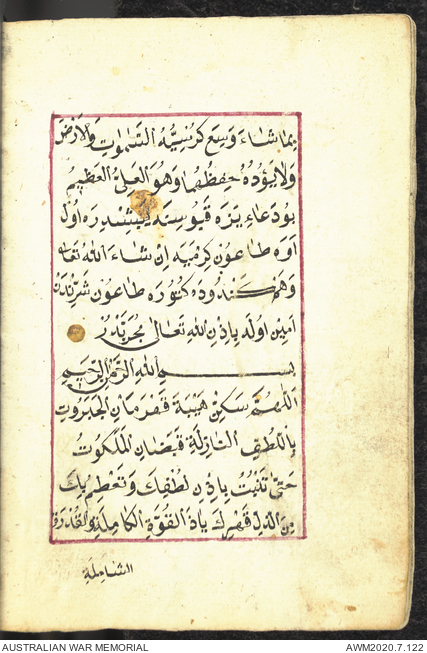 بِمَا شَاءَ وَسِعَ كُرْسِيُّهُ السَّمٰوَاتِ وَالْاَرْضَ
وَلَا يَؤُدُهُ حِفْظُهُمَا وَهُوَ الْعَلِيُّ الْعَظِيمُ
بُو دُعَاءِ يَزَه قَپُوسِنَه يَپِشْدِرَه اُولْ
اَوَه طَاعُونْ كِرْمَيَه اِنْ شَاءَ اللّٰهُ تَعَالٰى
وَهَمْ كَنْدُودَه كُتُورَه طَاعُونْ شَرِّنْدَنْ
اَمِينْ اُولَه بِاِذْنِ اللّٰهِ تَعَالٰى مُجَرَّبْدُرْ
بِسْمِ اللّٰهِ الرَّحْمٰنِ الرَّحِيمِ
اَللّٰهُمَّ سَكِّنْ هَيْبَةَ قَهْرَمَانِ الْجَبَرُوتِ
بِاللُّطْفِ النَّازِلَةِ فَيَضَانِ الْمَلَكُوتِ
حَتّٰى تَثَبَّتَ بِاِذْنِ لُطْفِكَ وَنَعْتَصِمُ بِكَ
مِنَ قَهْرِكَ يَاذَا الْقُوَّةِ الْكَامِلَةِ وَالْقُدْرَةِ
الشَّامِلَةِ
AUSTRALIAN WAR MEMORIAL AWM2020.7.122